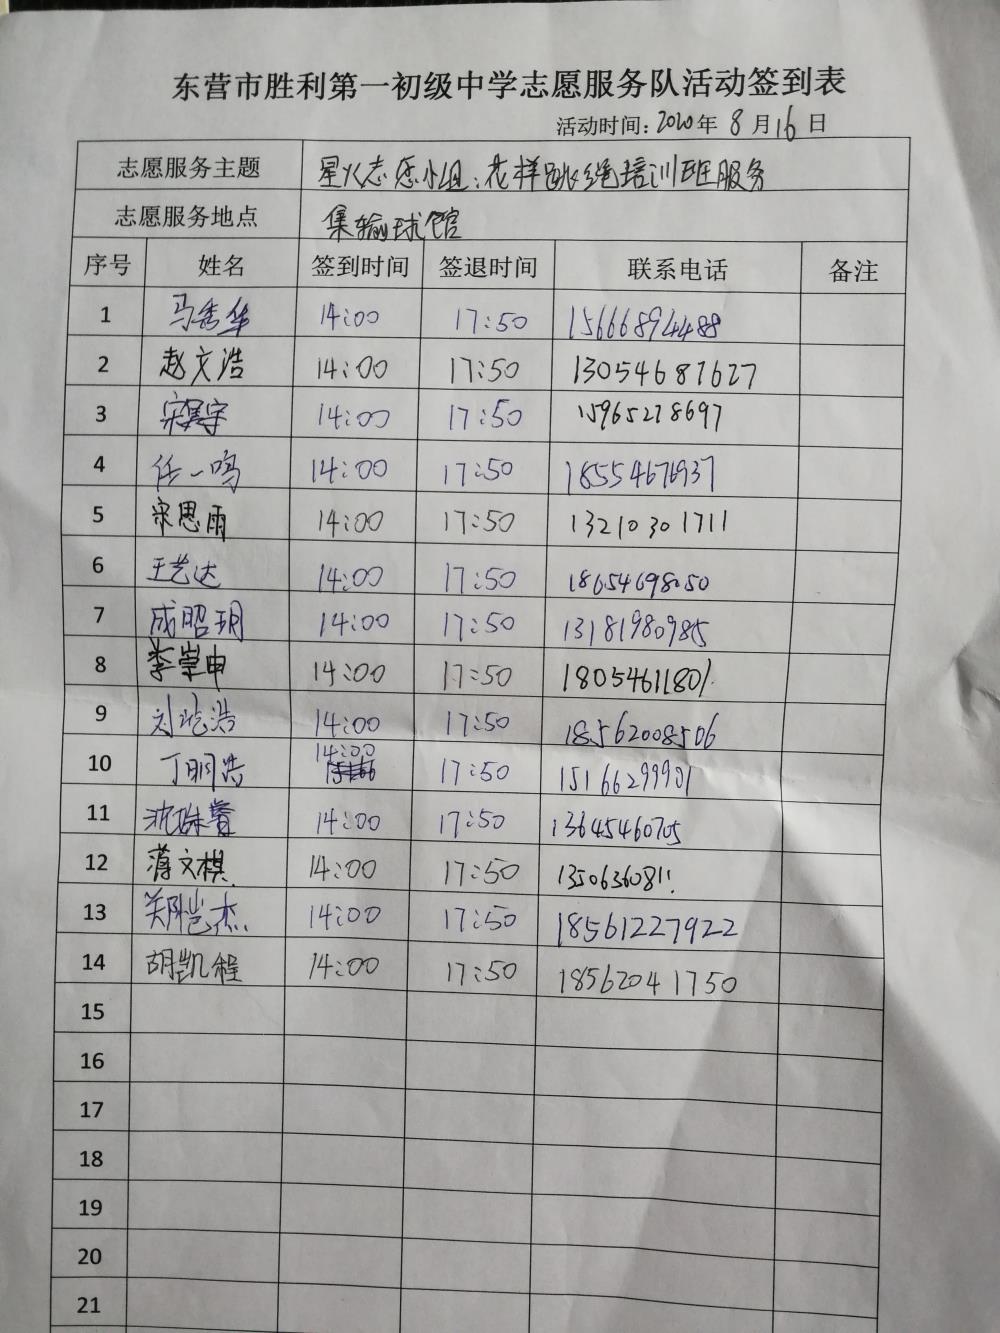 东营市胜利第一初级中学志愿服务队活动签到表
活动时间：2020年 8月16日
志愿服务主题 星火志愿小组：花样跳绳培训班服务
志愿服务地点 集输球馆
序号 姓名 签到时间 签退时间 联系电话 备注
1 马秀华 14:00 17:50 15666894488
2 赵文浩 14:00 17:50 13054687627
3 14:00 17:50 15965278697
4 任一鸣 14:00 17:50 18554676937
5 宋思雨 14:00 17:50 13210301711
6 王艺达 14:00 17:50 18654698050
7 成昭玥 14:00 17:50 13181980985
8 李崇申 14:00 17:50 18054611801
9 刘屹浩 14:00 17:50 18562008506
10 14:00 17:50 15166299901
11 14:00 17:50 13645460705
12 蒋文棋 14:00 17:50
13 郑凯杰 14:00 17:50 18561227922
14 胡凯程 14:00 17:50 18562041750
15
16
17
18
19
20
21